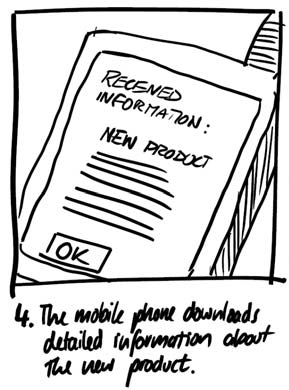 RECEIVED
INFORMATION:
NEW PRODUCT
OK
4. The mobile phone downloads
detailed information about
the new product.